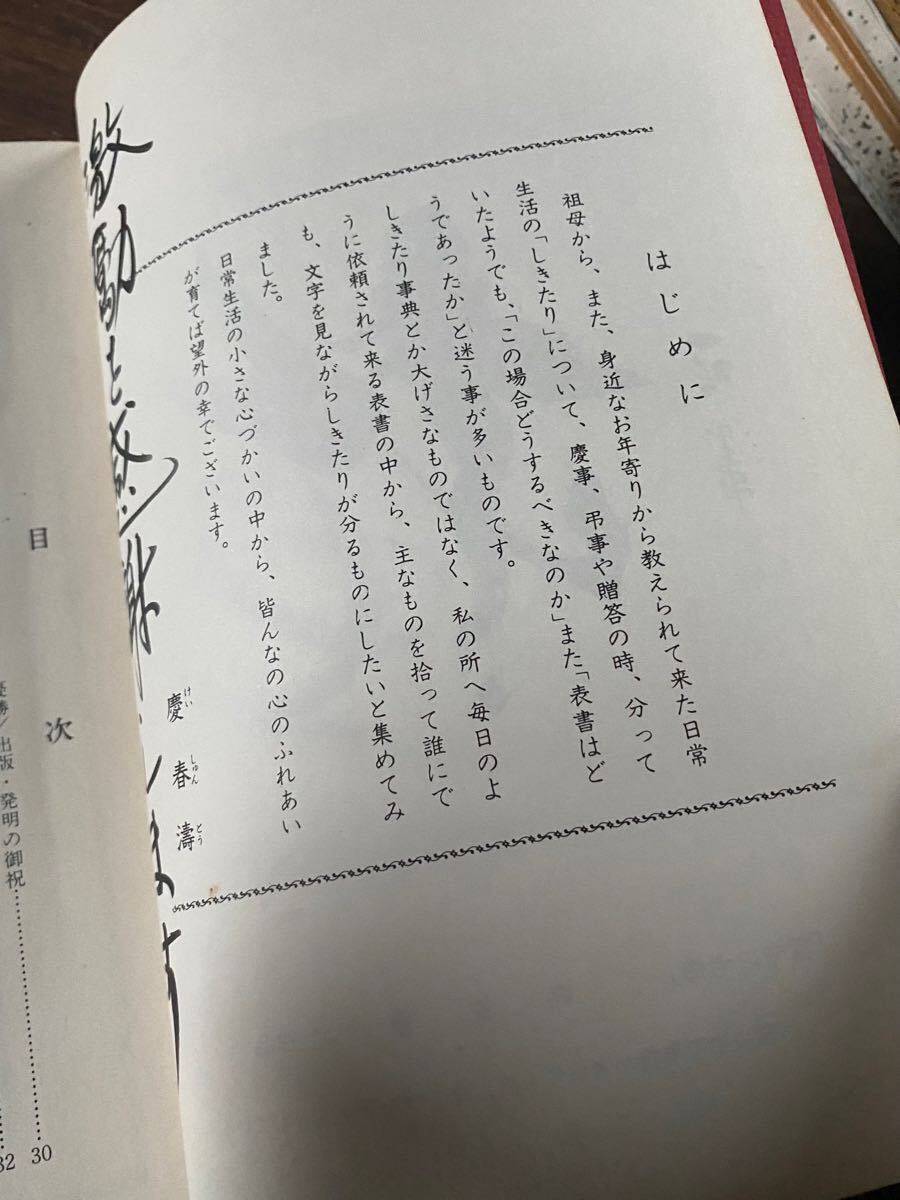 はじめに
祖母から、また、身近なお年寄りから教えられて来た日常
生活の「しきたり」について、慶事、弔事や贈答の時、分って
いたようでも、「この場合どうするべきなのか」また「表書はど
うであったか」と迷う事が多いものです。
しきたり事典とか大げさなものではなく、私の所へ毎日のよ
うに依頼されて来る表書の中から、主なものを拾って誰にで
も、文字を見ながらしきたりが分るものにしたいと集めてみ
ました。
日常生活の小さな心づかいの中から、皆んなの心のふれあい
が育てば望外の幸でございます。
慶春濤
けいしゅんとう
激励と感謝します
目次
優勝/出版・発明の御祝……30
32